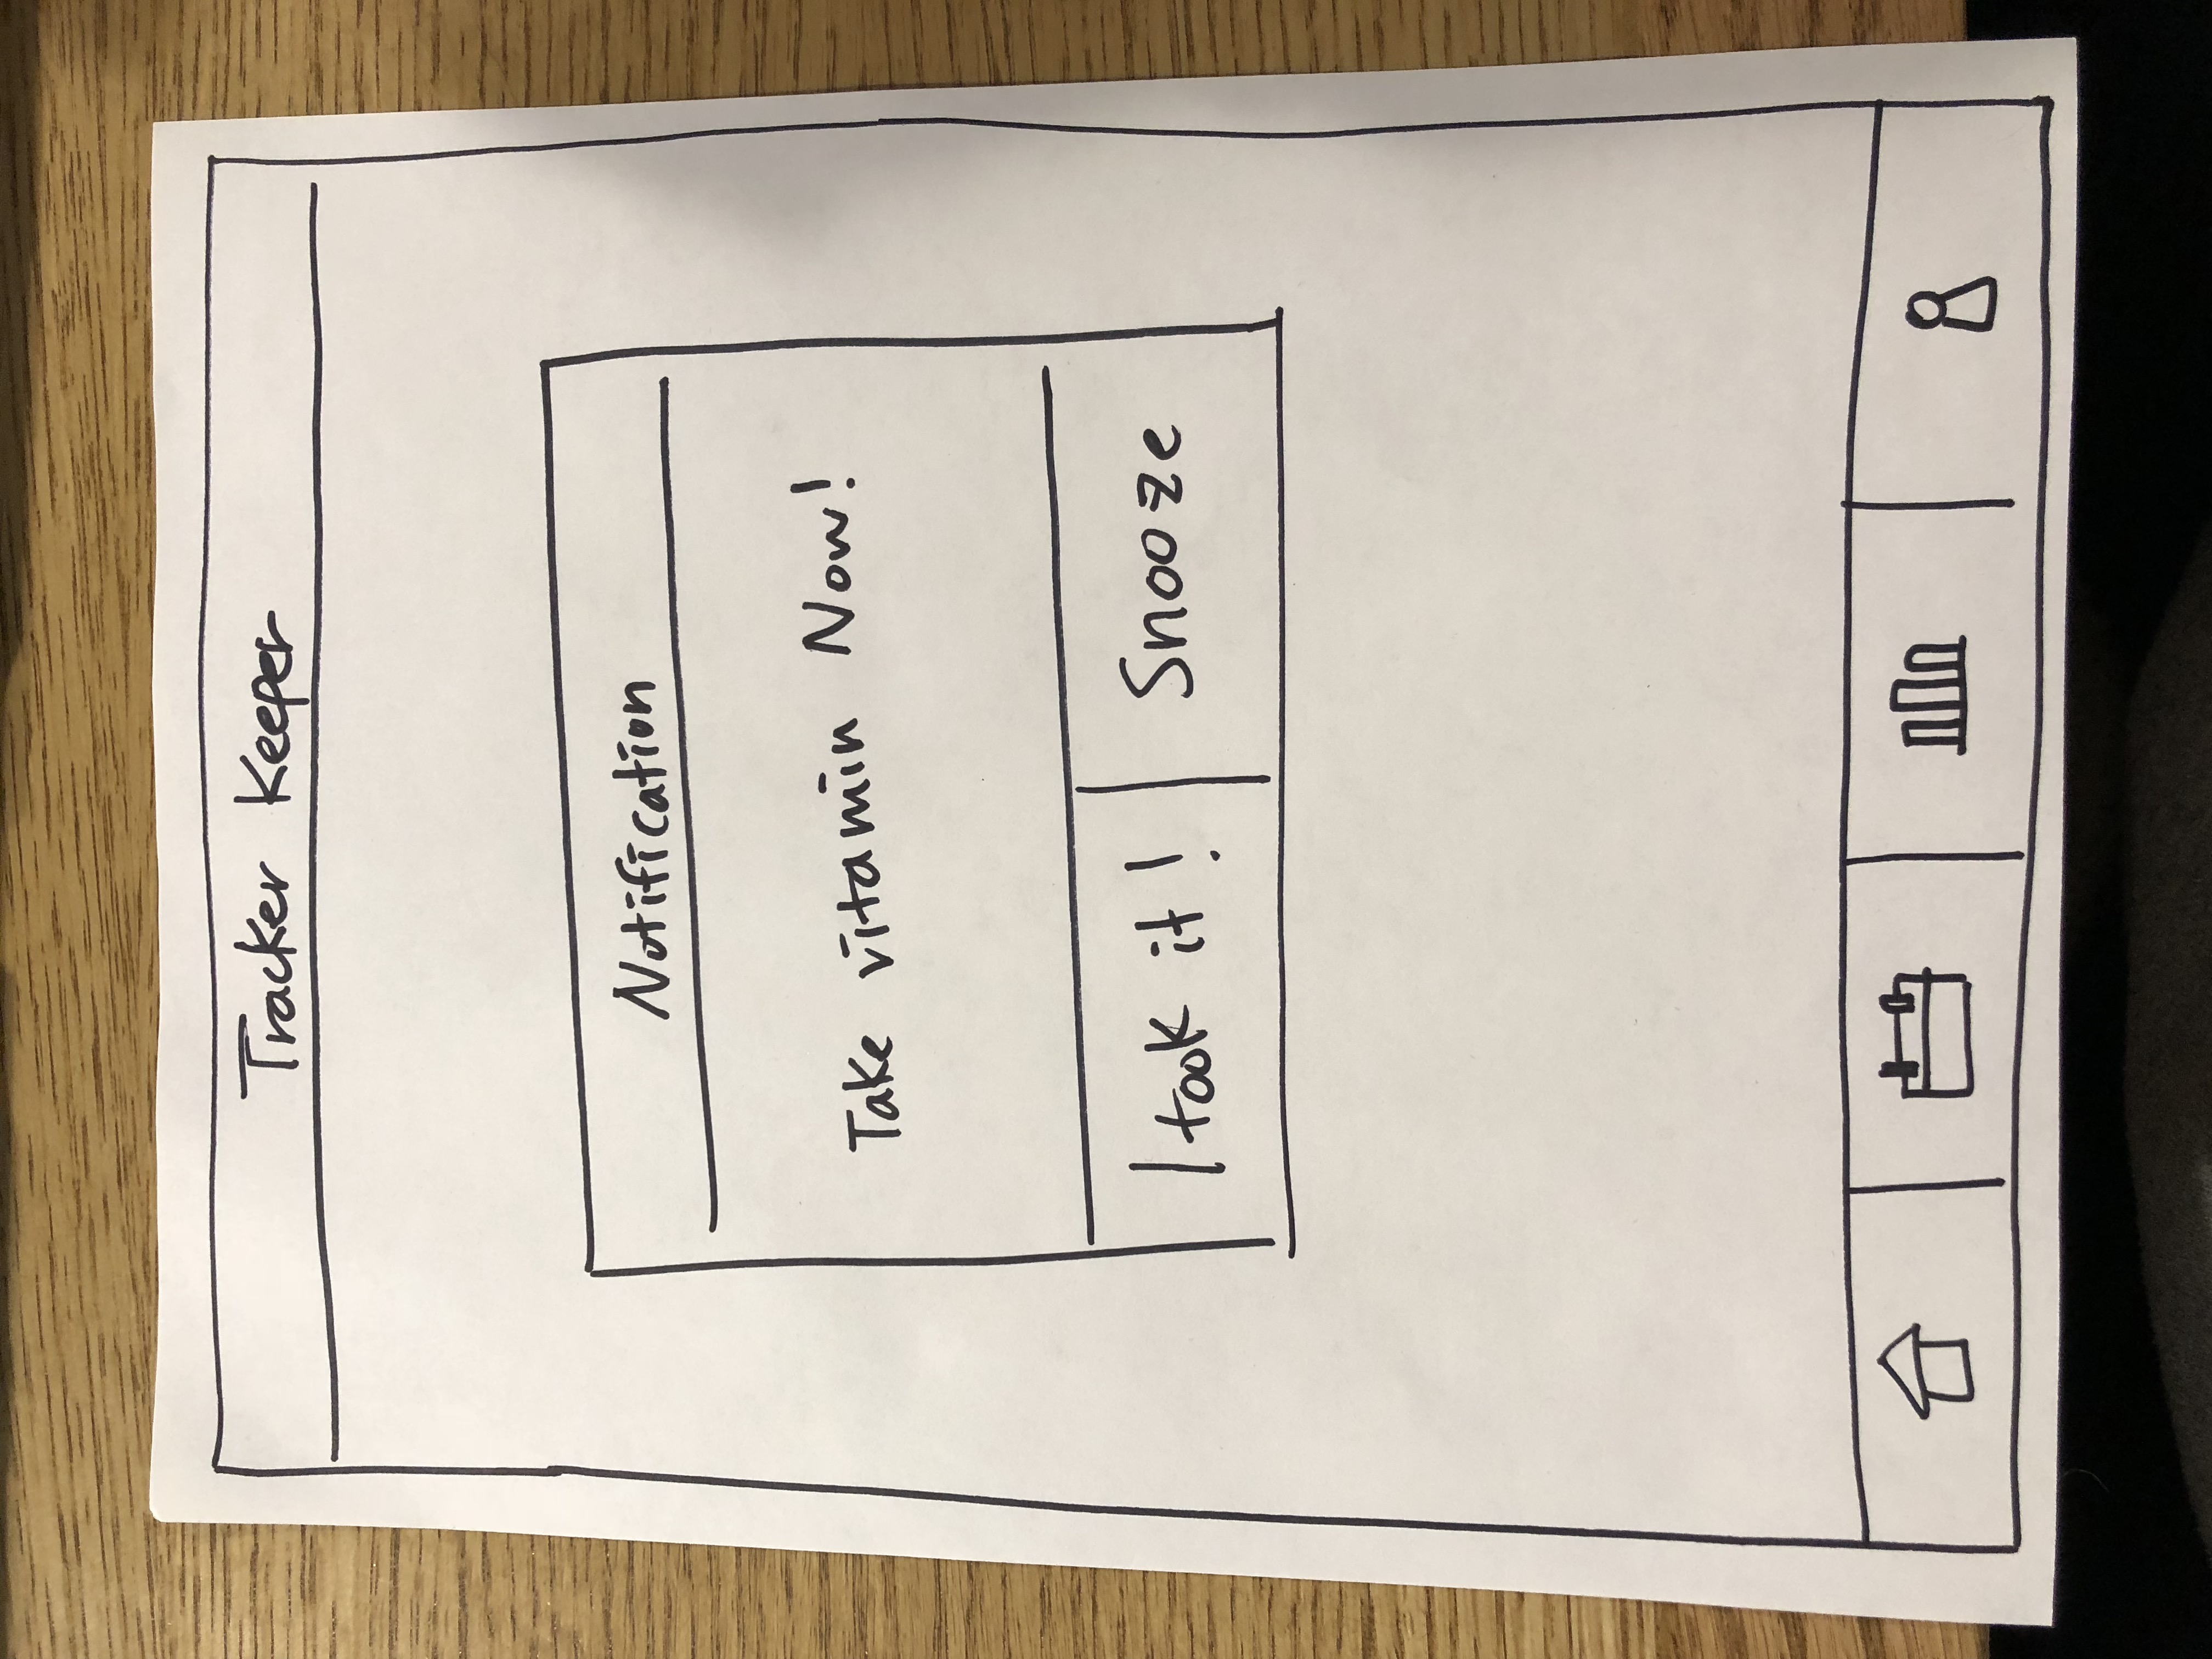 Tracker Keeper
Notification
Take vitamin Now!
I took it!
Snooze